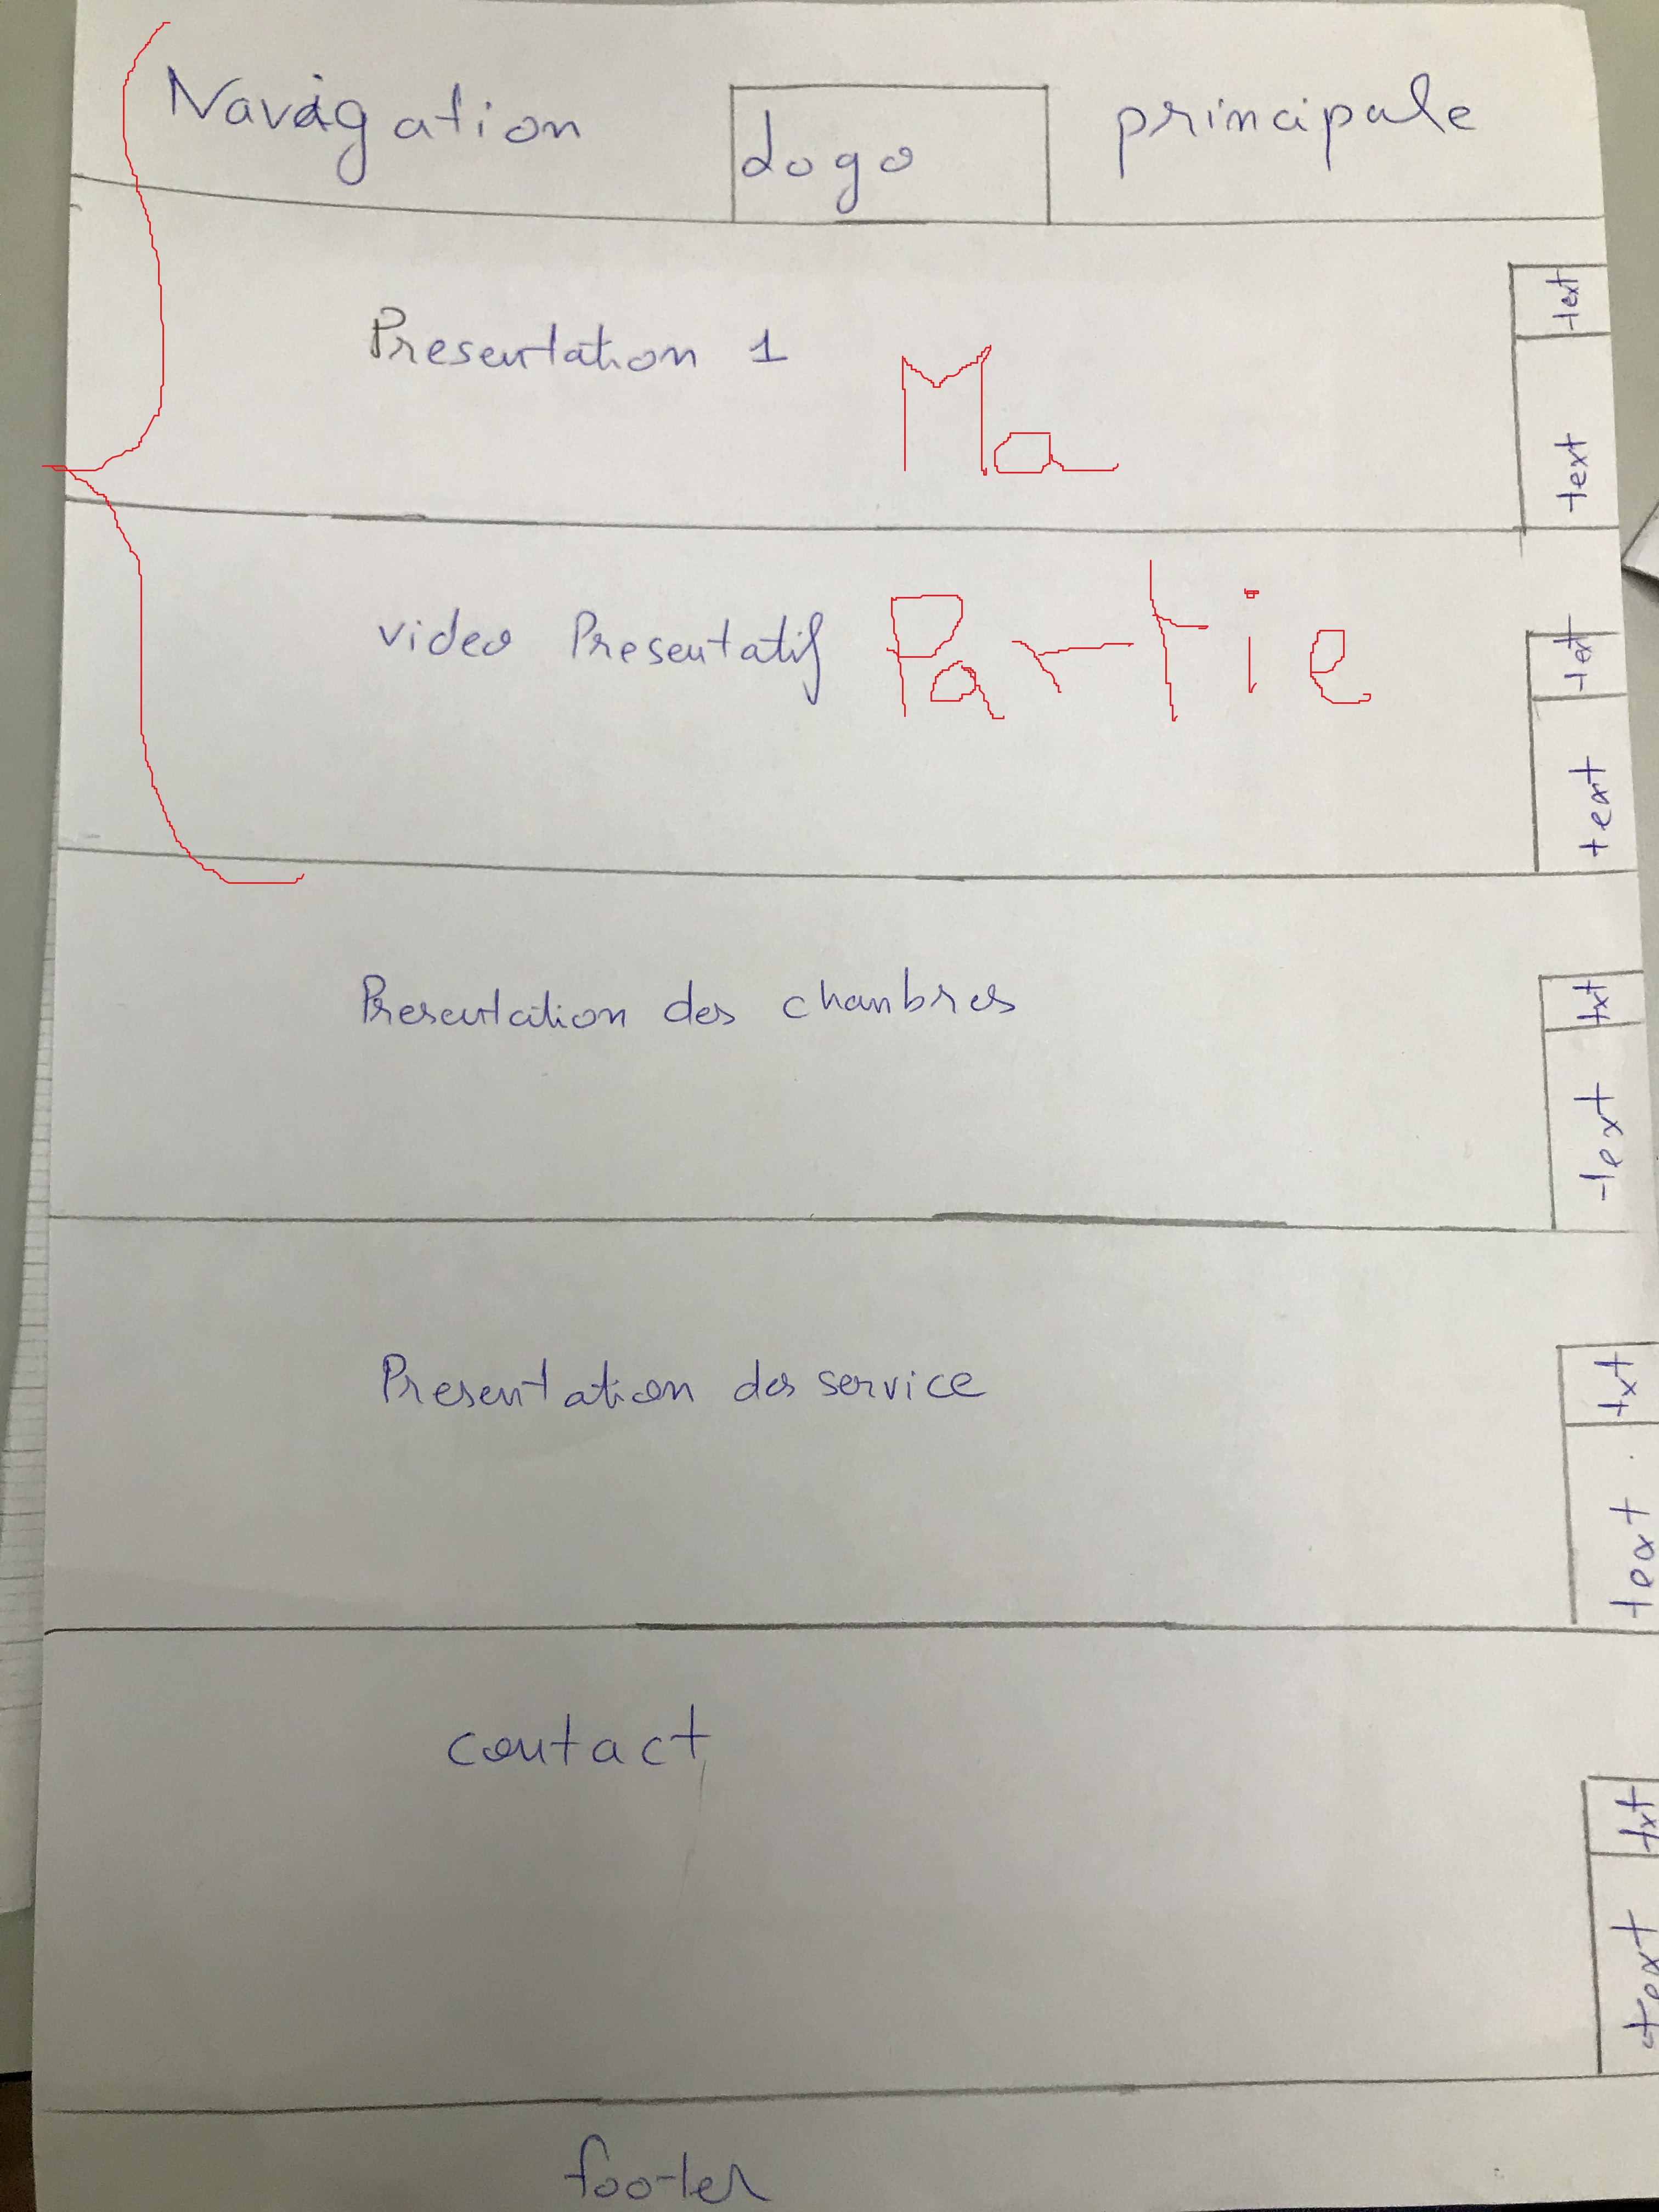 Navigation Logo principale
text
Presentation 1
Ma
text
text
video Presentatif Partie
text
txt
Presentation des chanbres
text
txt
Presentation des service
text
contact
txt
text
footer